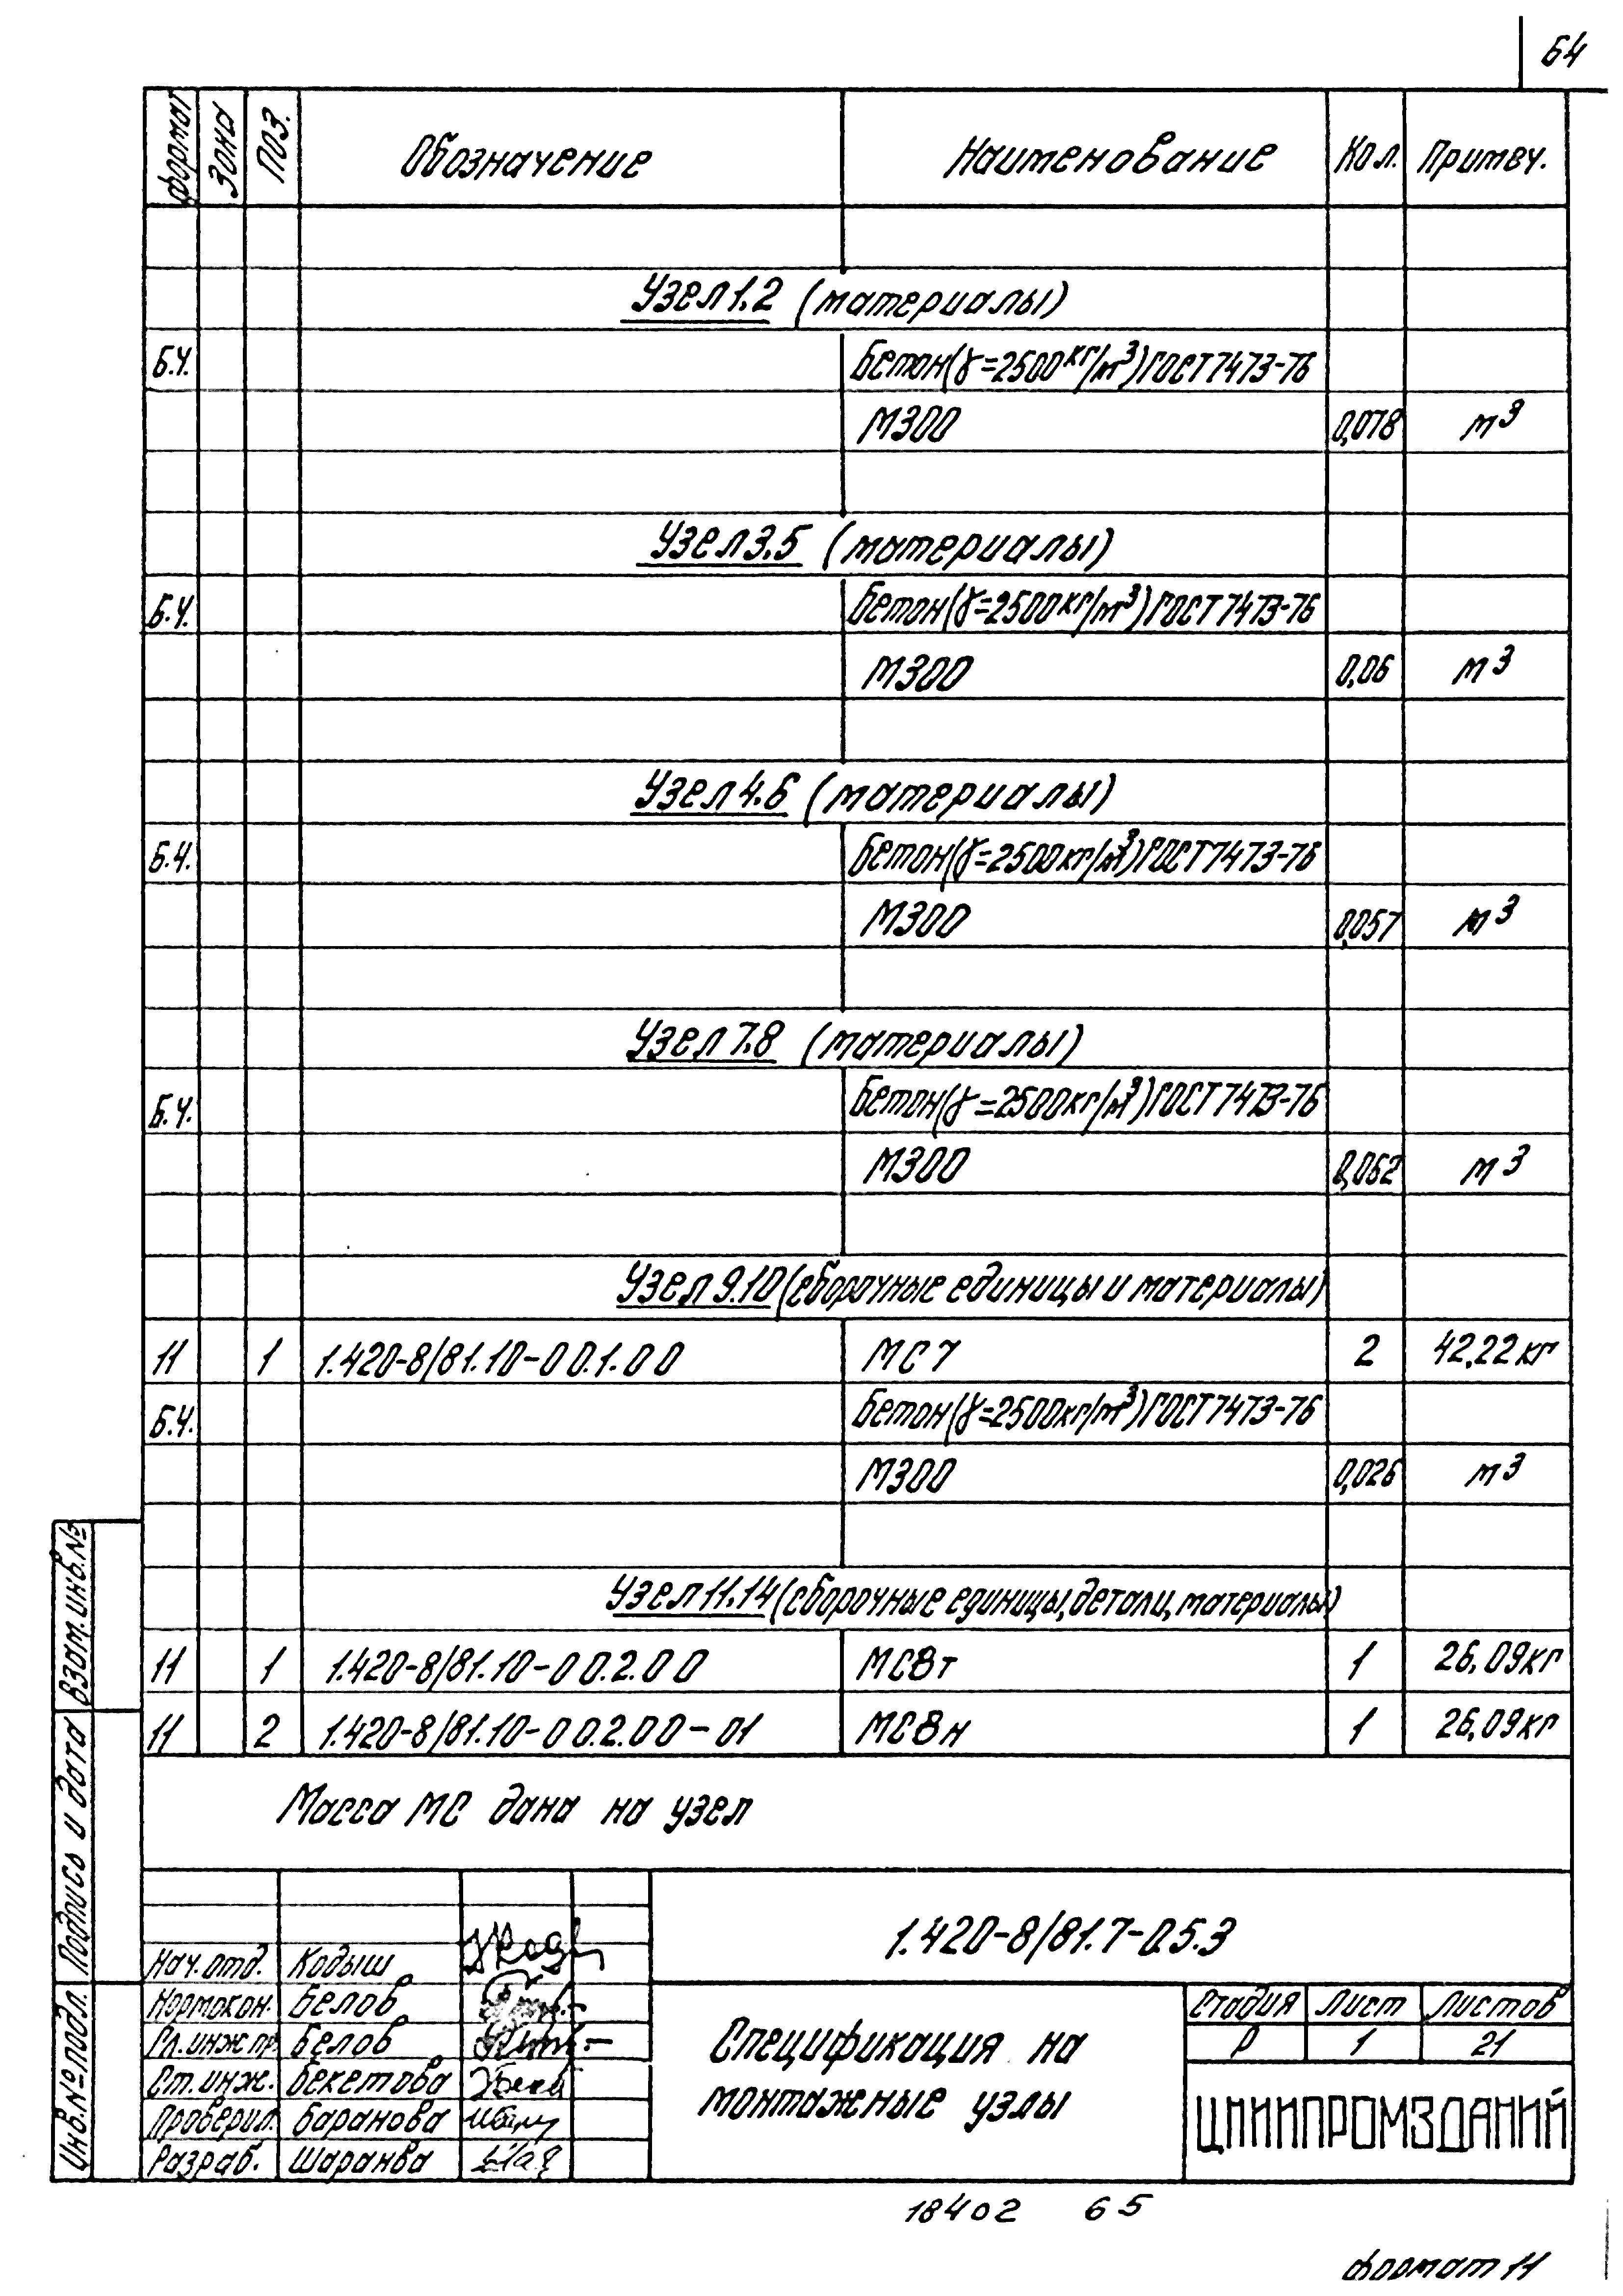 64
Формат Зона Поз. Обозначение Наименование Кол. Примеч.
Узел 1.2 (материалы)
Б.Ч. Бетон(γ=2500кг/м³)ГОСТ7473-76
М300 0,078 м³
Узел 3.5 (материалы)
Б.Ч. Бетон(γ=2500кг/м³)ГОСТ7473-76
М300 0,06 м³
Узел 4.6 (материалы)
Б.Ч. Бетон(γ=2500кг/м³)ГОСТ7473-76
М300 0,057 м³
Узел 7.8 (материалы)
Б.Ч. Бетон(γ=2500кг/м³)ГОСТ7473-76
М300 0,062 м³
Узел 9.10 (сборочные единицы и материалы)
11 1 1.420-8/81.10-00.1.00 МС7 2 42,22кг
Б.Ч. Бетон(γ=2500кг/м³)ГОСТ7473-76
М300 0,026 м³
Узел 11.14 (сборочные единицы, детали, материалы)
11 1 1.420-8/81.10-00.2.00 МС8т 1 26,09кг
11 2 1.420-8/81.10-00.2.00-01 МС8н 1 26,09кг
Масса МС дана на узел
Взам.инв.№
Подпись и дата
Инв.№подл.
1.420-8/81.7-0.5.3
Нач.отд. Кодыш
Нормокон. Белов
Гл.инж.пр. Белов
Ст.инж. Бекетова
Проверил. Баранова
Разраб. Шаранва
Спецификация на
монтажные узлы
Стадия Лист Листов
Р 1 21
ЦНИИПРОМЗДАНИЙ
18402 65
формат 11